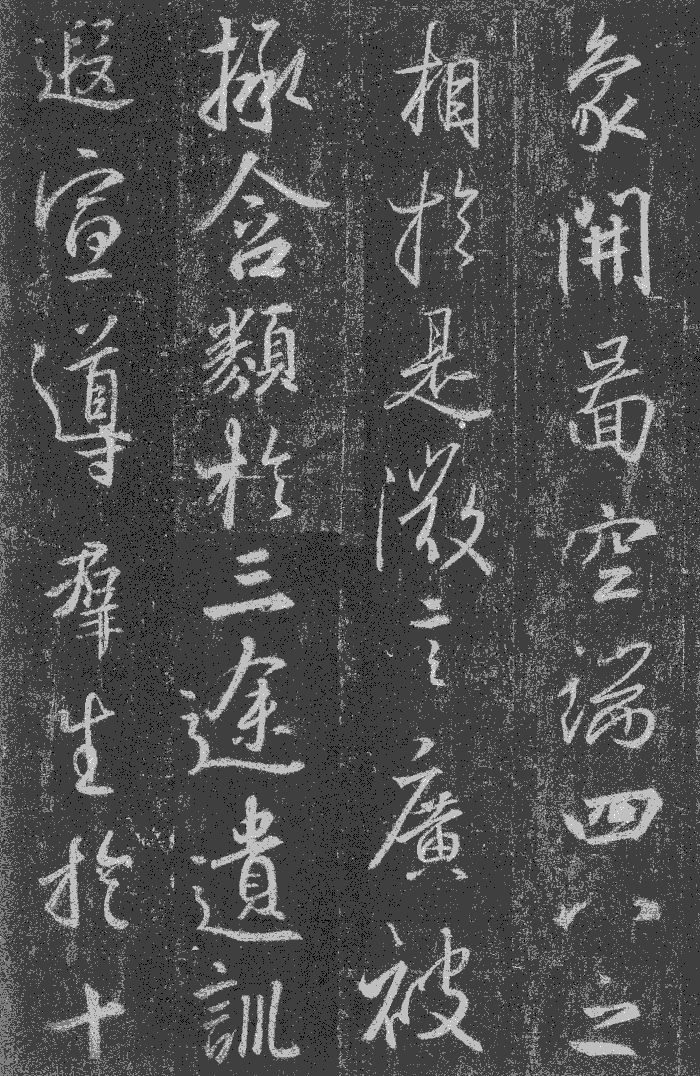 象開圖空端四八之
相於是微言廣被
拯含類於三途遺訓
遐宣導群生於十